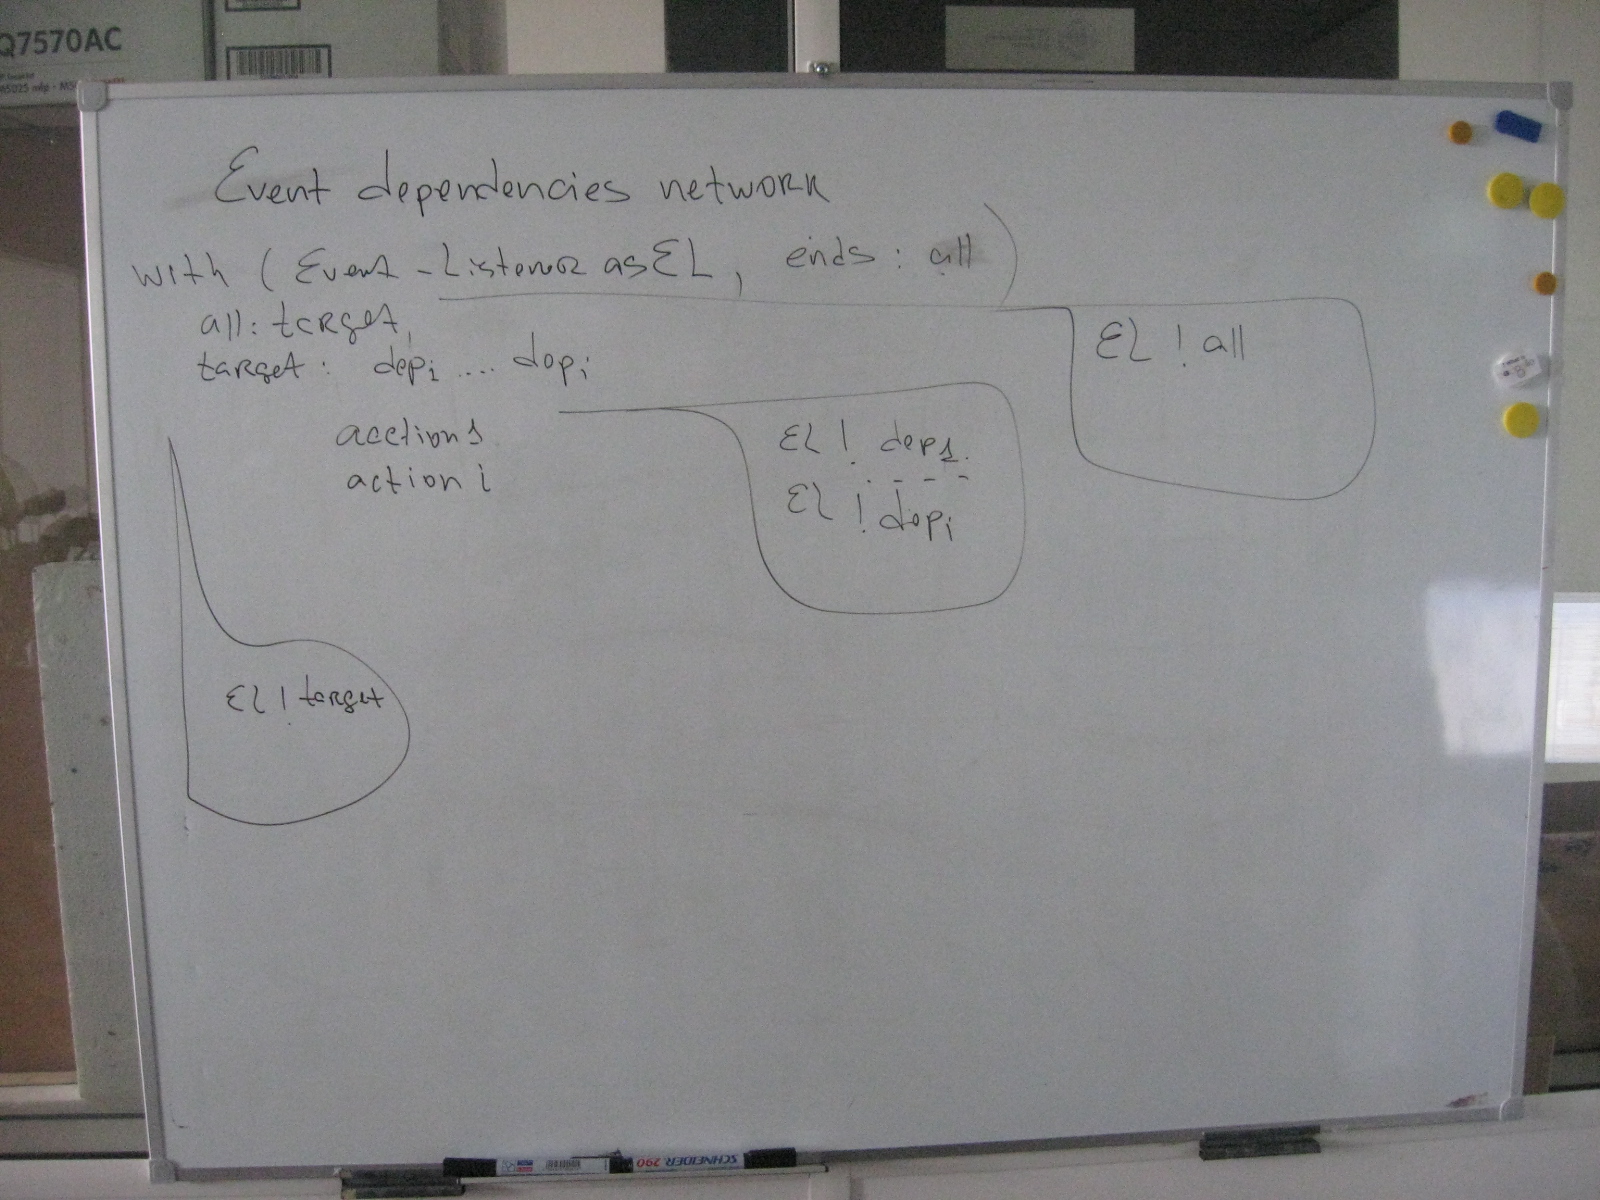 Q7570AC
M5025 mfp - M5
Event dependencies network
with ( Event - Listener as EL , ends : all )
all : target,
target : depi .... depi
acction1
action i
EL ! all
EL ! dep1.
- - - -
EL ! depi
EL ! target
SCHNEIDER 290